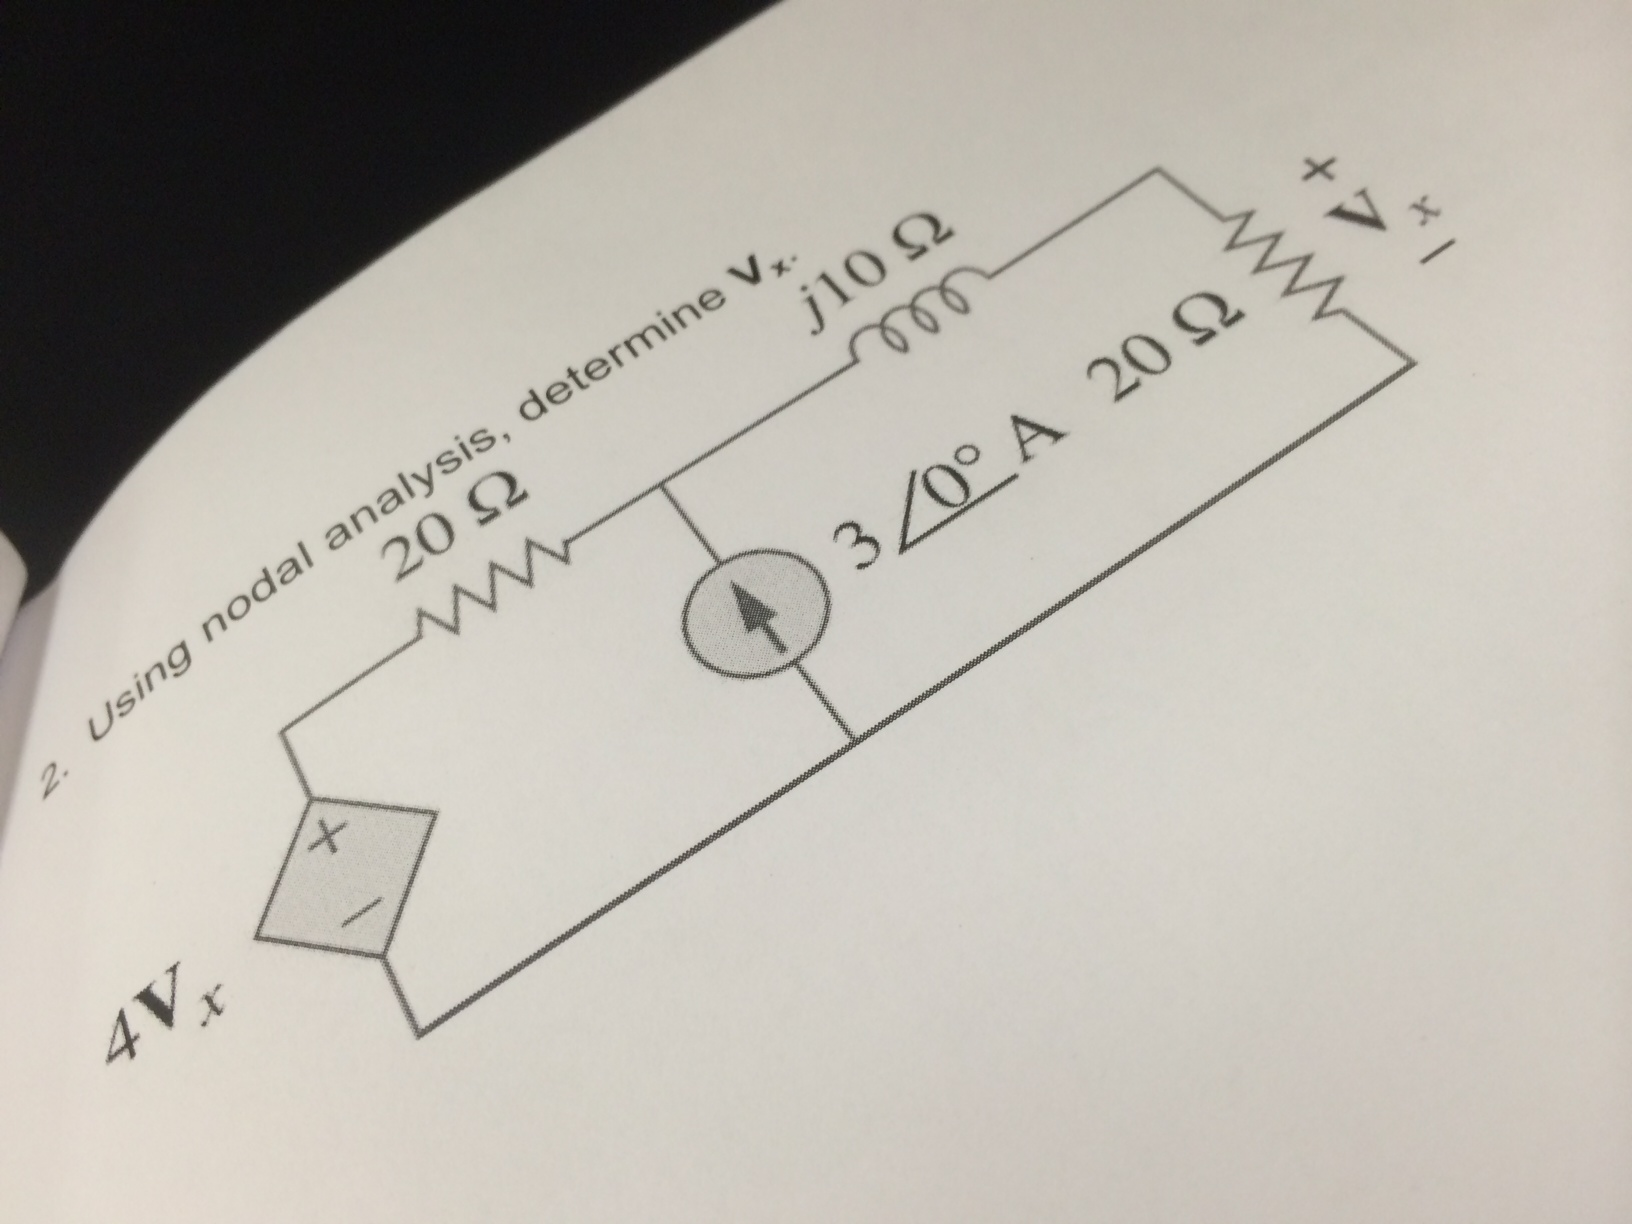 2. Using nodal analysis, determine Vx.
20 Ω
j10 Ω
+
Vx
−
20 Ω
3∠0° A
+
−
4Vx